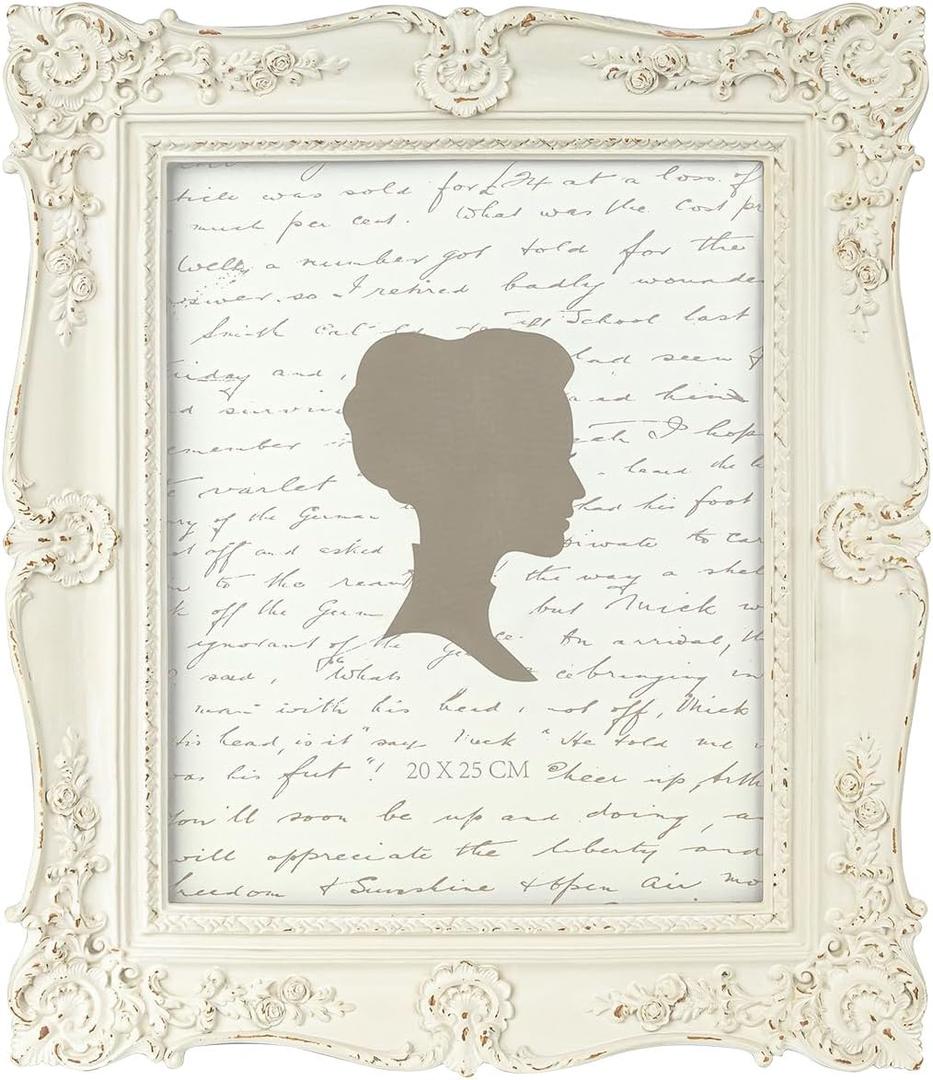 was sold for £24 at a loss of
much per cent. What was the cost pr
Well, a number got told for the
answer. so I retired badly wounde
Smith School last
iday and, had seen
d survivi and him
emember I hop
varlet heard the
ry of the German had his foot
off and asked private to car
to the rear the way a shel
k off the Germ but Mick w
ignorant of the On arrival, th
said, "Whats in
man with his head, not off, Mick
his head, is it" say "He told me
as his fut"! 20 X 25 CM Cheer up, Arth
You'll soon be up and doing, an
will appreciate the liberty and
freedom & Sunshine & open air mo